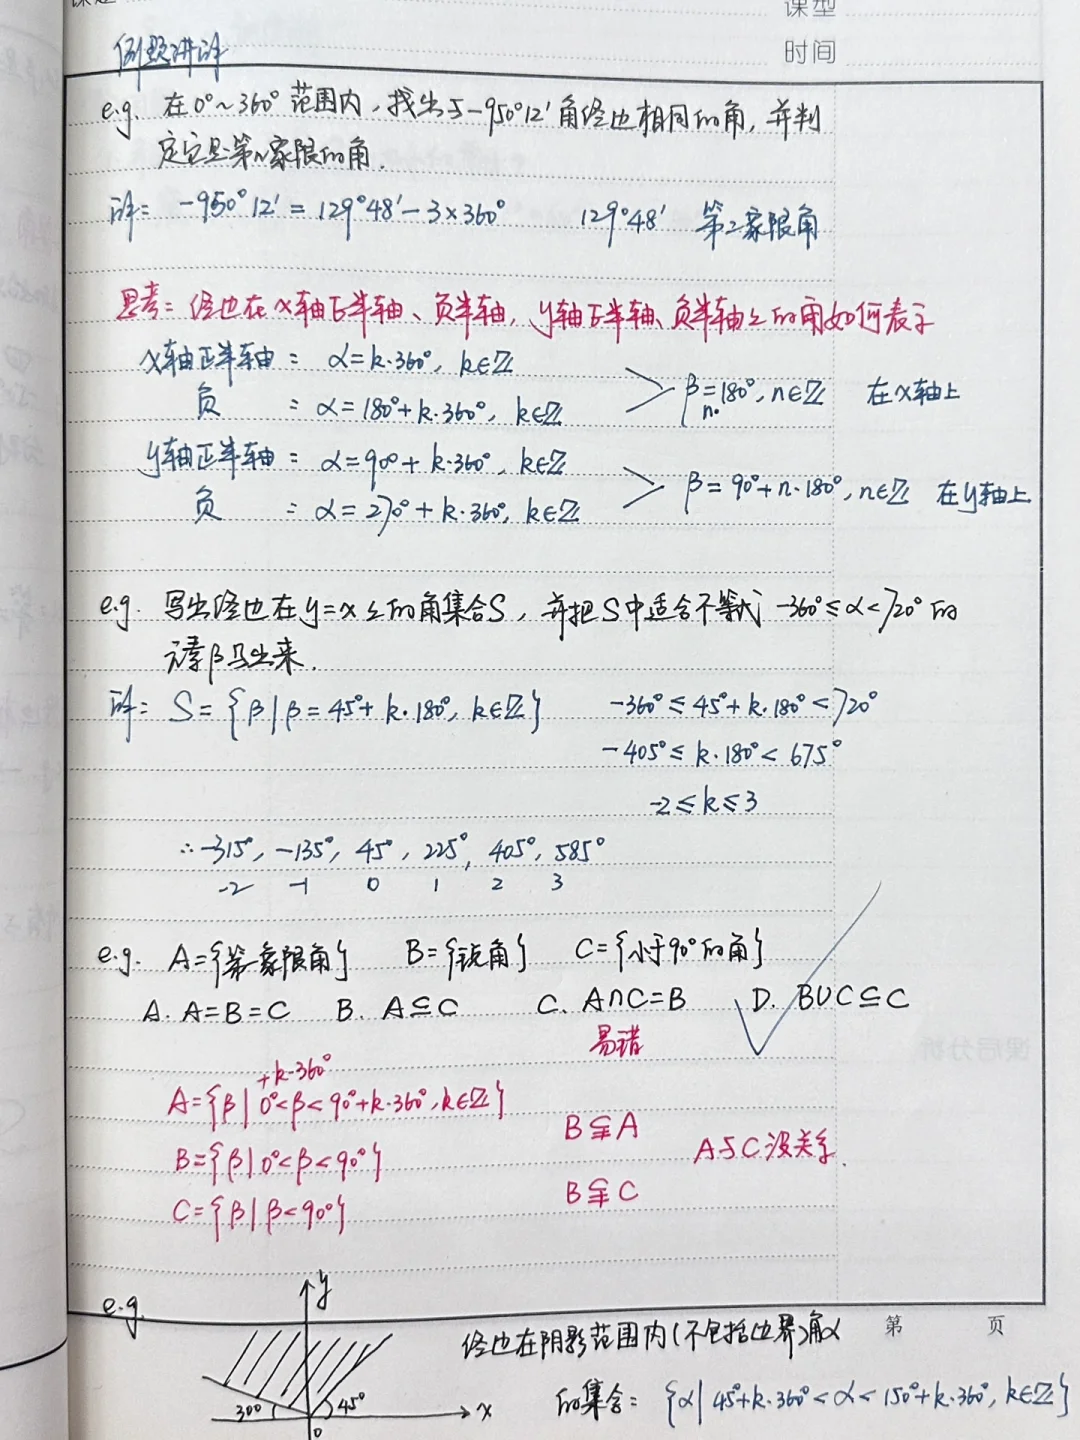 课型
例题讲解
时间
e.g. 在0°~360°范围内,找出与-950°12'角终边相同的角,并判
定它是第几象限的角.
解: -950°12' = 129°48' - 3×360° 129°48' 第二象限角
思考: 终边在x轴正半轴、负半轴,y轴正半轴、负半轴上的角如何表示
x轴正半轴: α=k·360°, k∈ℤ
负 : α=180°+k·360°, k∈ℤ
β=n·180°, n∈ℤ 在x轴上
y轴正半轴: α=90°+k·360°, k∈ℤ
负 : α=270°+k·360°, k∈ℤ
β=90°+n·180°, n∈ℤ 在y轴上
e.g. 写出终边在y=x上的角集合S,并把S中适合不等式 -360°≤α<720°的
元素β写出来.
解: S={β|β=45°+k·180°, k∈ℤ} -360°≤45°+k·180°<720°
-405°≤k·180°<675°
-2≤k≤3
∴ -315°, -135°, 45°, 225°, 405°, 585°
-2 -1 0 1 2 3
e.g. A={第一象限角} B={锐角} C={小于90°的角}
A. A=B=C B. A⊆C C. A∩C=B D. B∪C⊆C
易错
+k·360°
A={β|0°<β<90°+k·360°, k∈ℤ}
B⫋A
B={β|0°<β<90°}
A与C没关系.
C={β|β<90°}
B⫋C
e.g.
y
终边在阴影范围内(不包括边界)角α
第 页
30° 45° x
0
的集合: {α|45°+k·360°<α<150°+k·360°, k∈ℤ}